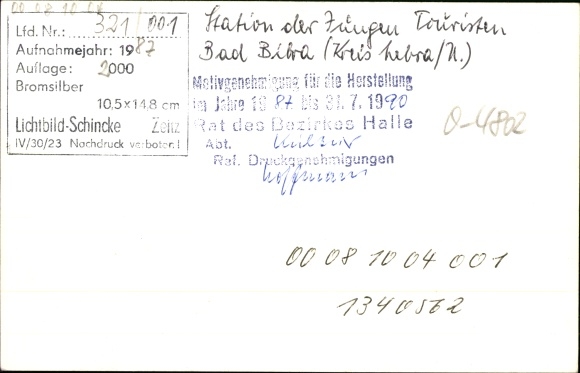 00 08 10 04
Lfd. Nr.: 321/001
Aufnahmejahr: 1987
Auflage: 2000
Bromsilber
10,5x14,8 cm
Lichtbild-Schincke Zeitz
IV/30/23 Nachdruck verboten!
Station der Jungen Touristen
Bad Bibra (Kreis Nebra/U.)
Motivgenehmigung für die Herstellung
im Jahre 1987 bis 31.7.1990
Rat des Bezirkes Halle
Abt. Kultur
Ref. Druckgenehmigungen
Hoffmann
0-4802
00 08 10 04 001
1340562